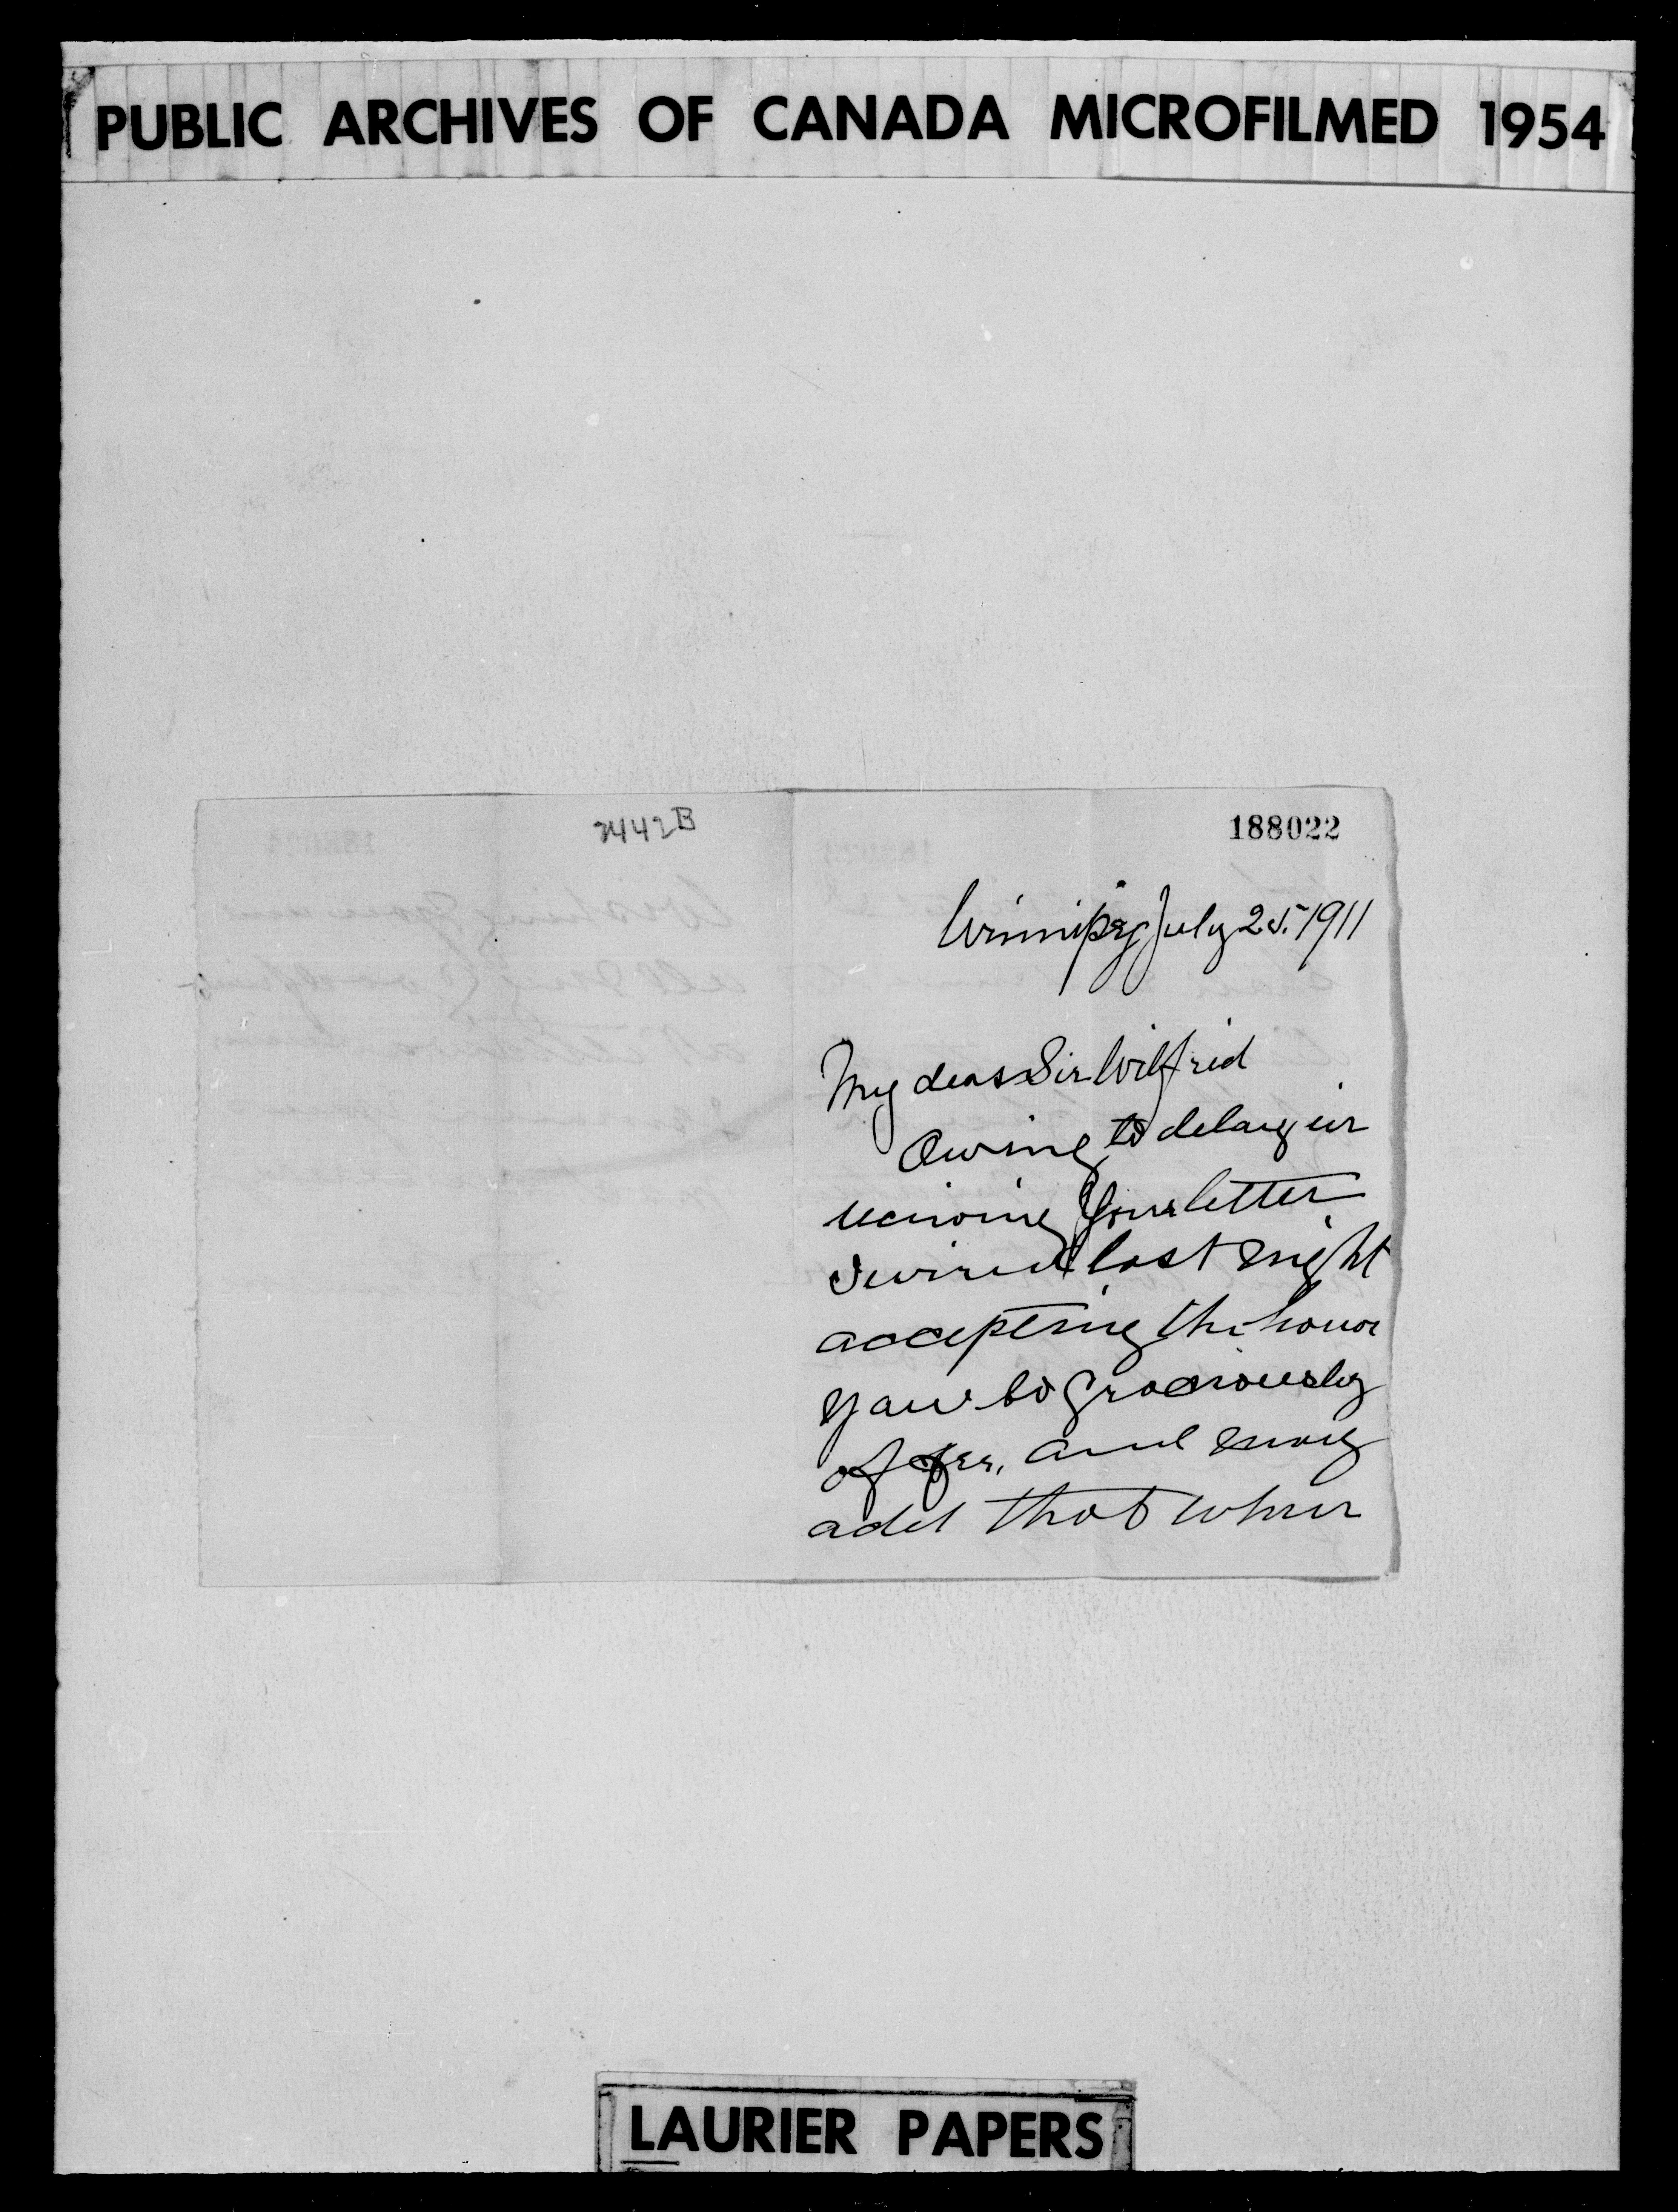 PUBLIC ARCHIVES OF CANADA MICROFILMED 1954
2442B
188022
Winnipeg July 25. 1911
My dear Sir Wilfrid
Owing to delay in
receiving your letter
I wired last night
accepting the honor
you so graciously
offer, and may
add that when
LAURIER PAPERS